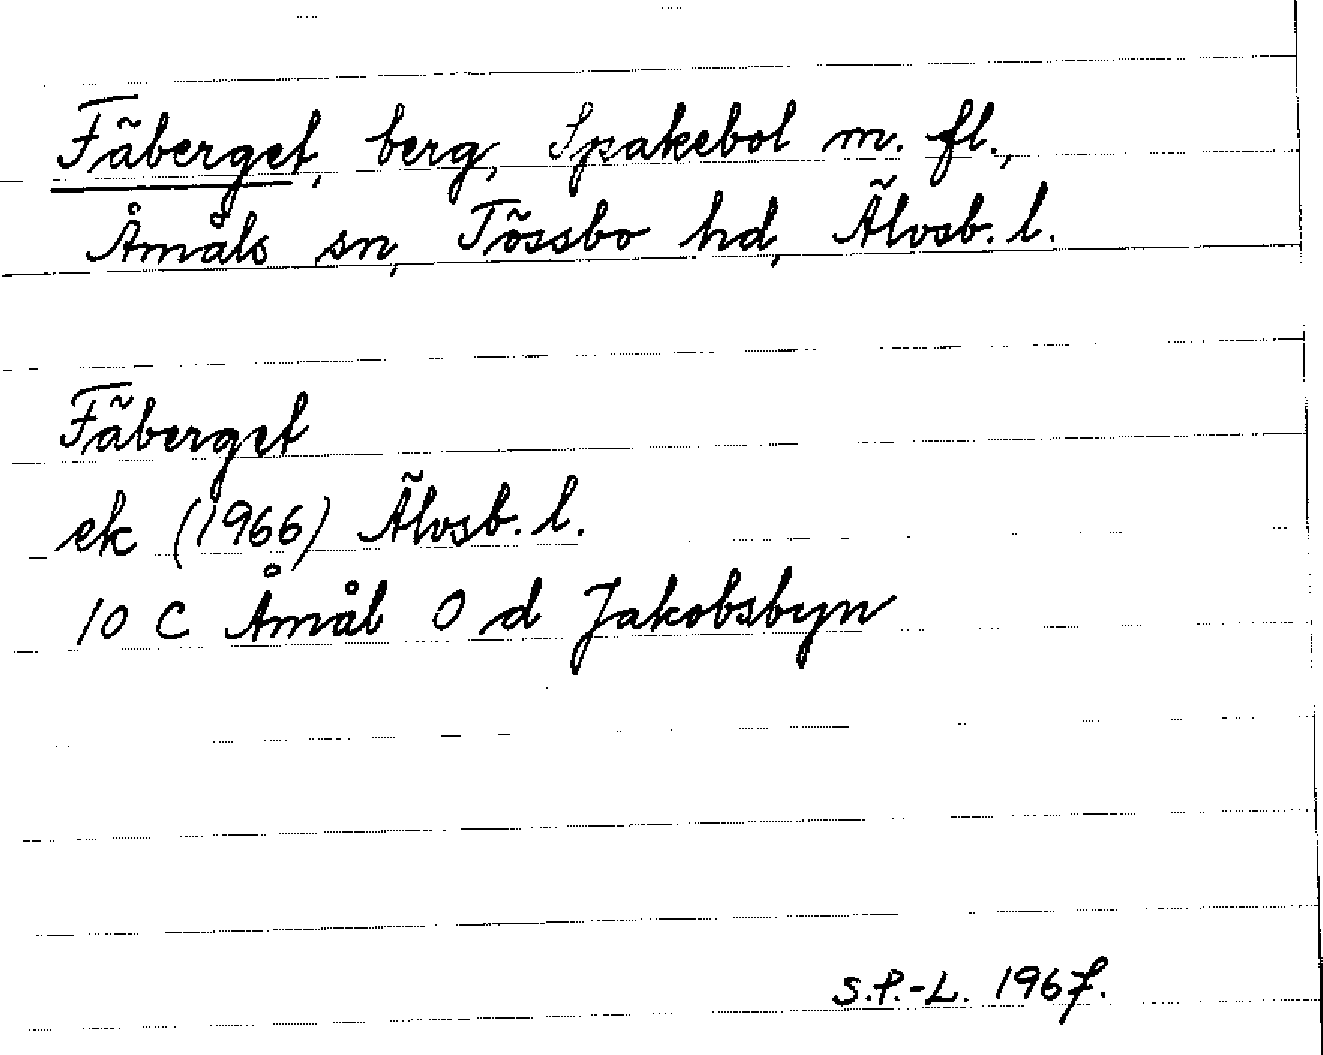 Fäberget, berg, Spakebol m. fl.,
Åmåls sn, Tössbo hd, Älvsb. l.
Fäberget
ek (1966) Älvsb. l.
10 C Åmål O d Jakobsbyn
S.P.-L. 1967.